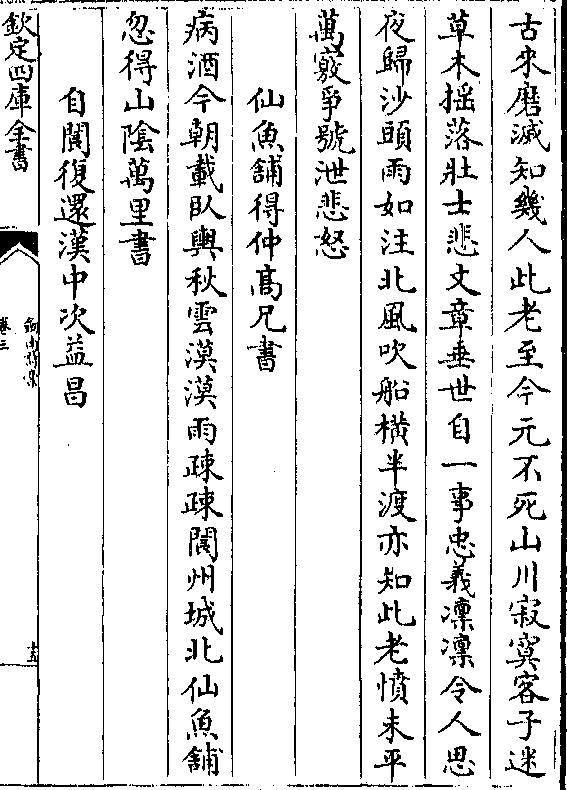 古來磨滅知幾人此老至今元不死山川寂寞客子迷
草木揺落壯士悲文章垂世自一事忠義凜凜令人思
夜歸沙頭雨如注北風吹船橫半渡亦知此老憤未平
萬竅爭號泄悲怒
仙魚鋪得仲高兄書
病酒今朝載臥輿秋雲漠漠雨疎疎閬州城北仙魚鋪
忽得山陰萬里書
自閬復還漢中次益昌
欽定四庫全書
劒南詩槀
卷三
十五